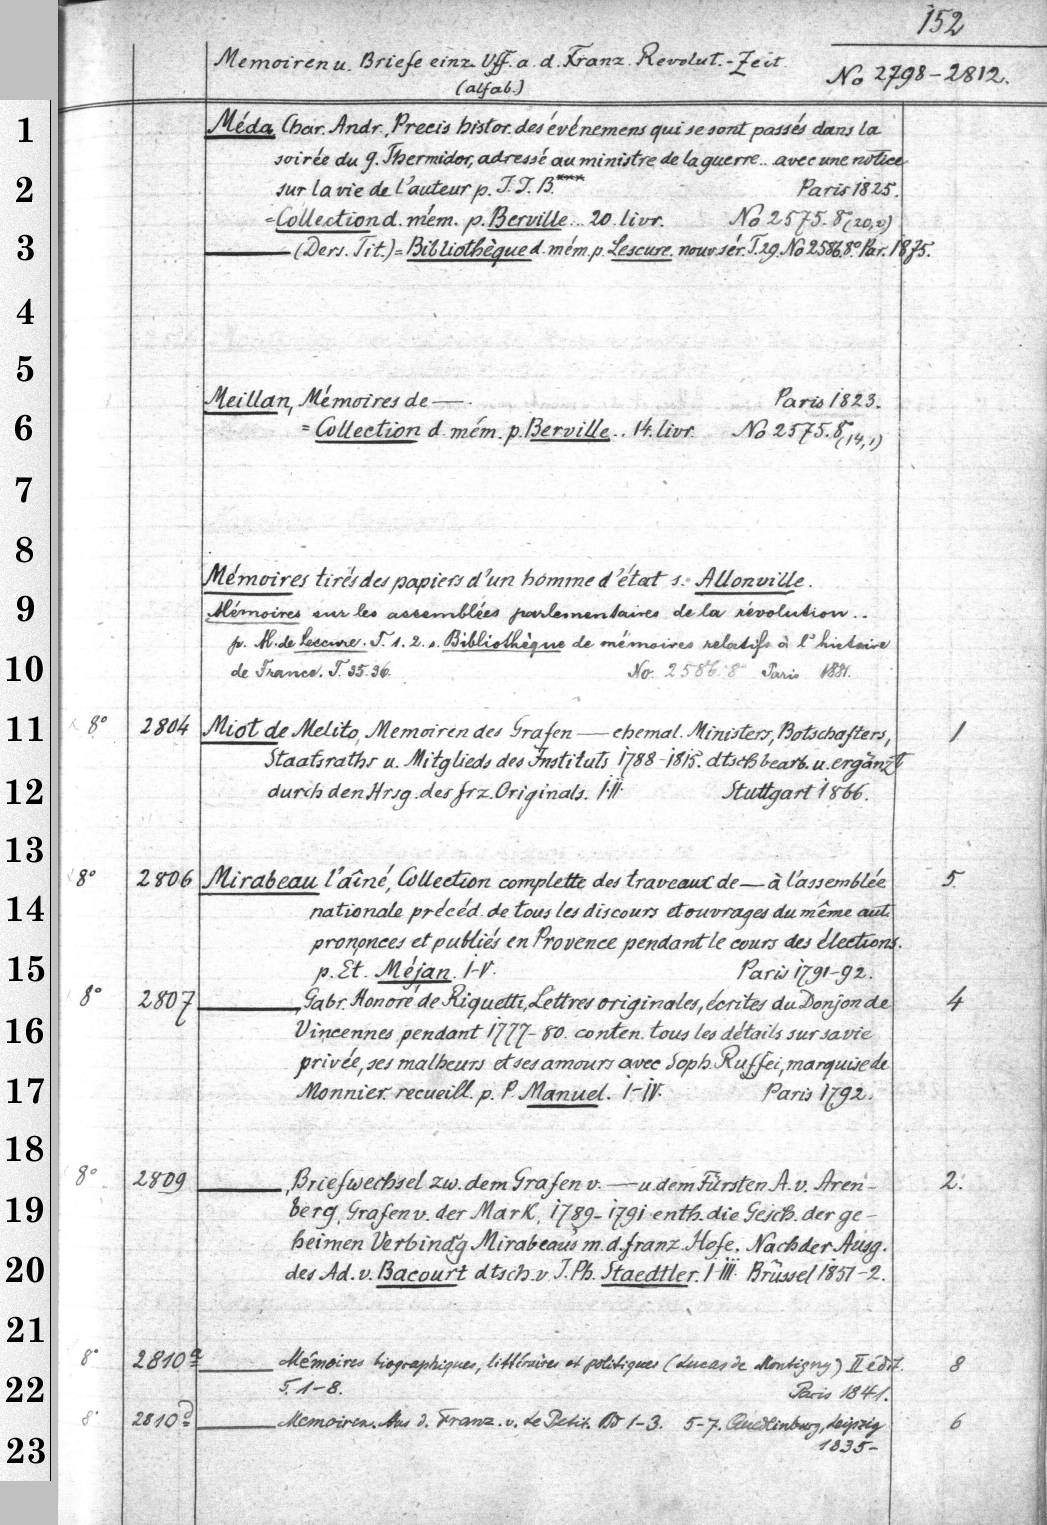 152
Memoiren u. Briefe einz. Vff. a. d. Franz. Revolut.-Zeit
(alfab.)
No 2798-2812.
1
Méda, Char. Andr., Precis histor. des événemens qui se sont passés dans la
soirée du 9. Thermidor, adressé au ministre de la guerre.. avec une notice
2
sur la vie de l'auteur p. J. J. B.*** Paris 1825.
= Collection d. mém. p. Berville... 20. livr. No 2575. 8° (20,2)
3
——— (Ders. Tit.) = Bibliothèque d. mém. p. Lescure. nouv. sér. T. 29. No 2586. 8° Par. 1875.
4
5
Meillan, Mémoires de —. Paris 1823.
6
= Collection d. mém. p. Berville.. 14. livr. No 2575. 8° (14,1)
7
8
Mémoires tirés des papiers d'un homme d'état s. Allonville.
9
Mémoires sur les assemblées parlementaires de la révolution..
p. M. de Lescure. T. 1. 2. s. Bibliothèque de mémoires relatifs à l'histoire
10
de France. T. 35. 36. No. 2586. 8° Paris 1881.
11
8° 2804 Miot de Melito, Memoiren des Grafen — ehemal. Ministers, Botschafters, 1
Staatsraths u. Mitglieds des Instituts 1788-1815. dtsch bearb. u. ergänzt
12
durch den Hrsg. des frz. Originals. I-II. Stuttgart 1866.
13
8° 2806 Mirabeau l'aîné, Collection complette des traveaux de — à l'assemblée 5.
14
nationale précéd. de tous les discours et ouvrages du même aut.
prononces et publiés en Provence pendant le cours des élections.
15
p. Et. Méjan. I-V. Paris 1791-92.
8° 2807 ———, Gabr. Honoré de Riquetti, Lettres originales, écrites du Donjon de 4
16
Vincennes pendant 1777-80. conten. tous les détails sur sa vie
privée, ses malheurs et ses amours avec Soph. Ruffei, marquise de
17
Monnier. recueill. p. P. Manuel. I-IV. Paris 1792.
18
8° 2809 ———, Briefwechsel zw. dem Grafen v. — u. dem Fürsten A. v. Aren- 2.
19
berg, Grafen v. der Mark, 1789-1791 enth. die Gesch. der ge-
heimen Verbind'g Mirabeaus m. d. franz. Hofe. Nach der Ausg.
20
des Ad. v. Bacourt dtsch. v J. Ph. Staedtler. I-III. Brüssel 1851-2.
21
8° 2810a ——— Mémoires biographiques, littéraires et politiques (Lucas de Montigny) II édit. 8
22
T. 1-8. Paris 1841.
8° 2810d ——— Memoiren. Aus d. Franz. v. de Petit. Bd 1-3. 5-7. Quedlinburg, Leipzig 6
23
1835-